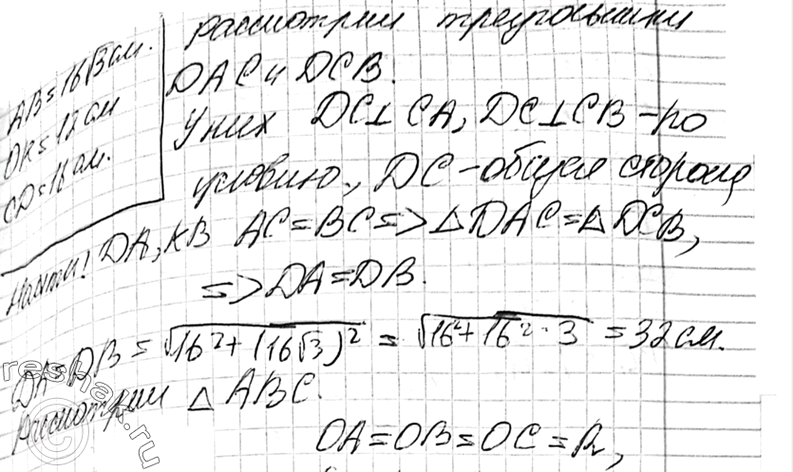 AB = 16√3 см.
OK = 12 см
CD = 16 см.
Найти: DA, KB
рассмотрим треугольники
DAC и DCB.
У них DC⊥CA, DC⊥CB – по
условию, DC – общая сторона
AC = BC => △DAC = △DCB,
=> DA = DB.
DA = DB = √16² + (16√3)² = √16² + 16² · 3 = 32 см.
Рассмотрим △ABC.
OA = OB = OC = R,
reshak.ru